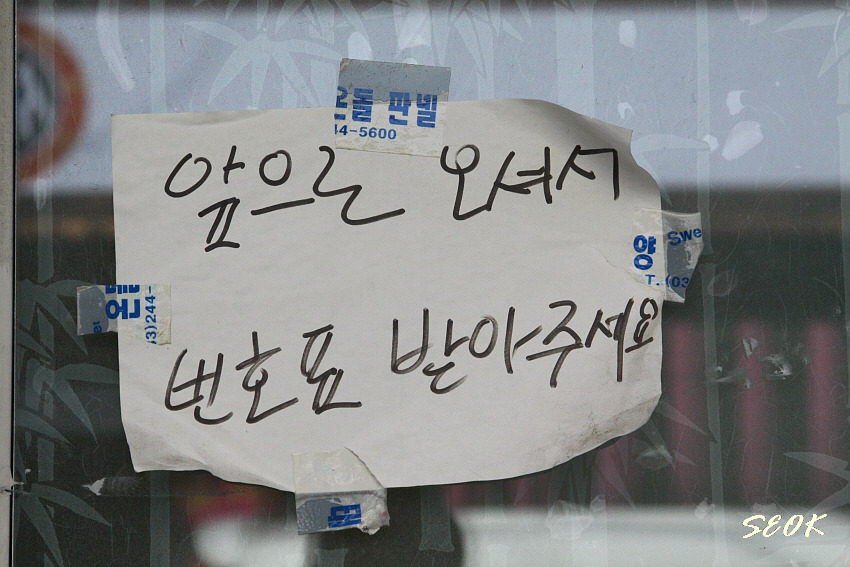 온돌 판넬
44-5600
앞으로 오셔서
양 Swe
T.(03
3)244-
번호표 받아주세요
SEOK